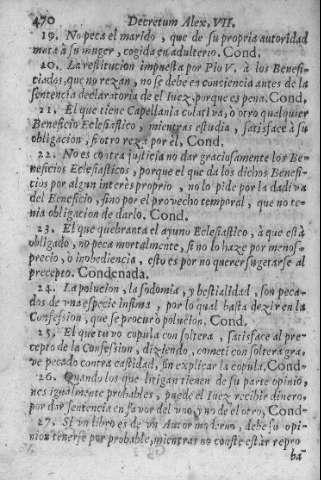 470 Decretum Alex. VII.
19. No peca el marido, que de su propria autoridad
mata à su muger, cogida en adulterio. Cond.
20. La restitucion impuesta por Pio V. à los Benefi-
ciados, que no rezan, no se debe en conciencia antes de la
sentencia declaratoria de el Iuez, porque es pena. Cond.
21. El que tiene Capellania colativa, ò otro qualquier
Beneficio Eclesiastico, mientras estudia, satisface à su
obligacion, si otro reza por el. Cond.
22. No es contra justicia no dar graciosamente los Be-
neficios Eclesiasticos, porque el que da los dichos Benefi-
cios por algun interès proprio, no lo pide por la dadiva
del Beneficio, sino por el provecho temporal, que no te-
nia obligacion de darlo. Cond.
23. El que quebranta el ayuno Eclesiastico, à que està
obligado, no peca mortalmente, si no lo haze por menos-
precio, ò inobediencia, esto es por no querer sugetarse al
precepto. Condenada.
24. La polucion, la sodomia, y bestialidad, son peca-
dos de vna especie insima, por lo qual basta dezir en la
Confession, que se procurò polucion. Cond.
25. El que tuvo copula con soltera, satisface al pre-
cepto de la Confession, diziendo, cometi con soltera gra-
ve pecado contra castidad, sin explicar la copula. Cond-
26. Quando los que litigan tienen de su parte opinio-
nes igualmente probables, puede el Iuez recibir dinero,
por dar sentencia en favor del vno, y no de el otro, Cond-
27. Si vn libro es de vn Autor moderno, debe su opi-
nion tenerse por probable, mientras no conste estàr repro
ba